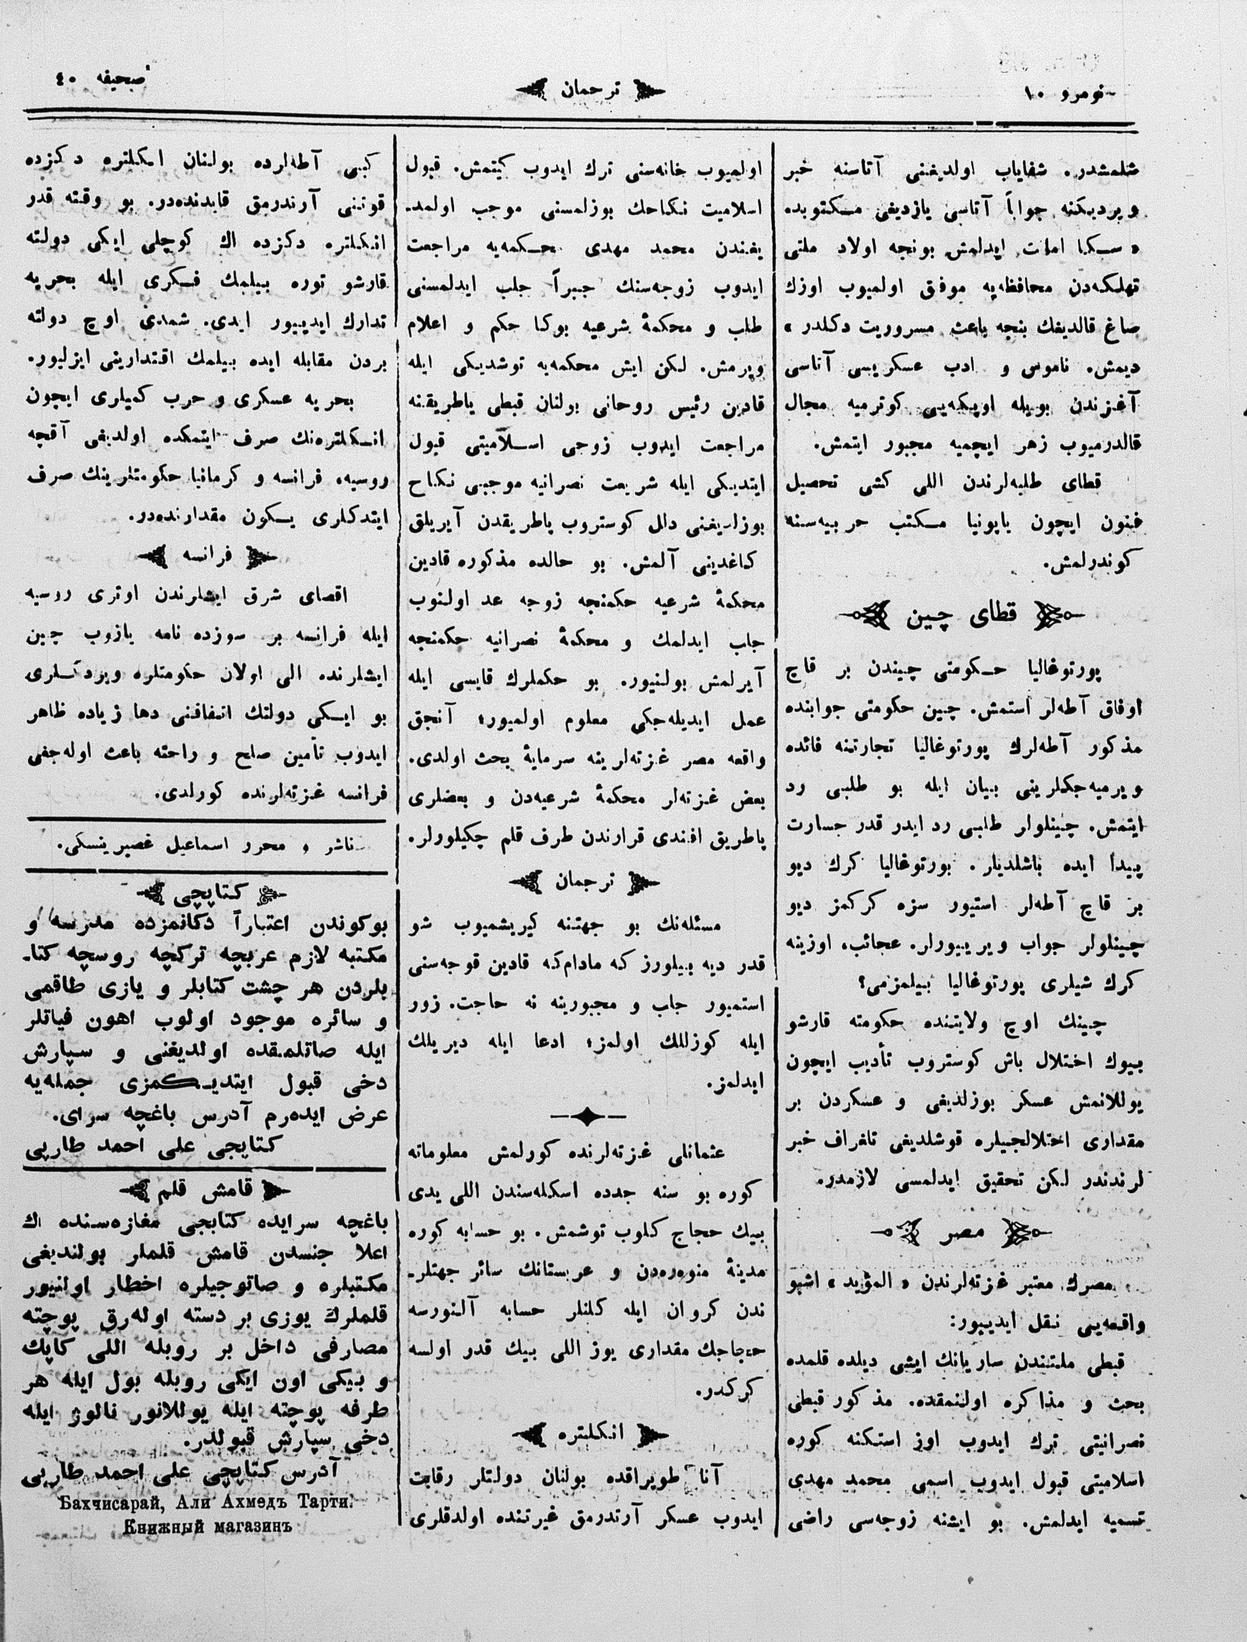 نومرو ١٠
ترجمان
صحیفه ٤٠
شلمشدر. شفایاب اولدیغنی آتاسنه خبر
ویردیکنه جواباً آتاسی یازدیغی مکتوبده
« سکا امانت ایدلمش بونجه اولاد ملتی
تهلکه‌دن محافظه‌یه موفق اولمیوب اوزك
صاغ قالدیغك بنجه باعث مسروریت دکلدر »
دیمش. ناموس و ادب عسکریسی آتاسی
آغزندن بویله اویکه‌یی کوترمیه مجال
قالدرمیوب زهر ایچمیه مجبور ایتمش.
قطای طلبه‌لرندن اللی کشی تحصیل
فنون ایچون یاپونیا مکتب حربیه‌سنه
کوندرلمش.
قطای چین
پورتوغالیا حکومتی چیندن بر قاچ
اوفاق آطه‌لر استمش. چین حکومتی جوابنده
مذکور آطه‌لرك پورتوغالیا تجارتنه فائده
ویرمیه‌جکلرینی بیان ایله بو طلبی رد
ایتمش. چینلولر طلبی رد ایدر قدر جسارت
پیدا ایده باشلدیلر. بورتوغالیا کرك دیو
بر قاچ آطه‌لر استیور سزه کرکمز دیو
چینلولر جواب ویرییورلر. عجائب، اوزینه
کرك شیلری پورتوغالیا بیلمزمی؟
چینك اوچ ولایتنده حکومته قارشو
بیوك اختلال باش کوستروب تأدیب ایچون
یوللانمش عسکر بوزلدیغی و عسکردن بر
مقداری اختلالجیلره قوشلدیغی تلغراف خبر
لرندندر لکن تحقیق ایدلمسی لازمدر.
مصر
مصرك معتبر غزته‌لرندن « المؤید » اشبو
واقعه‌یی نقل ایدییور:
قبطی ملتندن ساریانك ایشی دیلده قلمده
بحث و مذاکره اولنمقده. مذکور قبطی
نصرانیتی ترك ایدوب اوز استکنه کوره
اسلامیتی قبول ایدوب اسمی محمد مهدی
تسمیه ایدلمش. بو ایشنه زوجه‌سی راضی
اولمیوب خانه‌سنی ترك ایدوب کیتمش. قبول
اسلامیت نکاحك بوزلمسنی موجب اولمد-
یغندن محمد مهدی حکمه‌یه مراجعت
ایدوب زوجه‌سنك جبراً جلب ایدلمسنی
طلب و محکمهٔ شرعیه بوکا حکم و اعلام
ویرمش. لکن ایش محکمه‌یه توشدیکی ایله
قادین رئیس روحانی بولنان قبطی پاطریقنه
مراجعت ایدوب زوجی اسلامیتی قبول
ایتدیکی ایله شریعت نصرانیه موجبی نکاح
بوزلدیغنی دال کوستروب پاطریقدن آیریلق
کاغدینی آلمش. بو حالده مذکوره قادین
محکمهٔ شرعیه حکمنجه زوجه عد اولنوب
جلب ایدلمك و محکمهٔ نصرانیه حکمنجه
آیرلمش بولنیور. بو حکملرك قایسی ایله
عمل ایدیله‌جکی معلوم اولمیور؛ آنجق
واقعه مصر غزته‌لرینه سرمایهٔ بحث اولدی.
بعض غزته‌لر محکمهٔ شرعیه‌دن و بعضلری
پاطریق افندی قرارندن طرف قلم چکیلورلر.
ترجمان
مسئله‌نك بو جهتنه کیریشمیوب شو
قدر دیه بیلورز که مادام‌که قادین قوجه‌سنی
استمیور جلب و مجبورینه نه حاجت. زور
ایله کوزللك اولمز؛ ادعا ایله دیریلك
ایدلمز.
عثمانلی غزته‌لرنده کورلمش معلوماته
کوره بو سنه جدده اسکله‌سندن اللی یدی
بیك حجاج کلوب توشمش. بو حسابه کوره
مدینهٔ منوره‌دن و عربستانك سائر جهتلر-
ندن کروان ایله کلنلر حسابه آلنورسه
حجاجك مقداری یوز اللی بیك قدر اولسه
کرکدر.
انکلتره
آنا طوپراقده بولنان دولتلر رقابت
ایدوب عسکر آرتدرمق غیرتنده اولدقلری
کبی آطه‌لرده بولنان انکلتره دکزده
قوتنی آرتدرمق قابدنده‌در. بو وقته قدر
انکلتره دکزده اك کوچلی ایکی دولته
قارشو توره بیلمك فکری ایله بحریه
تدارك ایدییور ایدی. شمدی اوچ دولته
بردن مقابله ایده بیلمك اقتدارینی ایزلیور.
بحریه عسکری و حرب کمیلری ایچون
انکلتره‌نك صرف ایتمکده اولدیغی آقچه
روسیه، فرانسه و کرمانیا حکومتلرینك صرف
ایتدکلری یکون مقدارنده‌در.
فرانسه
اقصای شرق ایشلرندن اوتری روسیه
ایله فرانسه بر سوزده نامه یازوب چین
ایشلرنده الی اولان حکومتلره ویردکلری
بو ایکی دولتك اتفاقنی دها زیاده ظاهر
ایدوب تأمین صلح و راحته باعث اوله‌جغی
فرانسه غزته‌لرنده کورلدی.
ناشر و محرر اسماعیل غصپرینسکی.
کتاپچی
بوکوندن اعتباراً دکانمزده مدرسه و
مکتبه لازم عربچه ترکچه روسچه کتا-
بلردن هر چشت کتابلر و یازی طاقمی
و سائره موجود اولوب اهون فیاتلر
ایله صاتلمقده اولدیغنی و سپارش
دخی قبول ایتدیکمزی جمله‌یه
عرض ایده‌رم آدرس باغچه سرای.
کتابجی علی احمد طارپی
قامش قلم
باغچه سرایده کتابجی مغازه‌سنده اك
اعلا جنسدن قامش قلملر بولندیغی
مکتبلره و صاتوجیلره اخطار اولنیور
قلملرك یوزی بر دسته اوله‌رق پوچته
مصارفی داخل بر روبله اللی کاپك
و بیکی اون ایکی روبله بول ایله هر
طرفه پوچته ایله یوللانور نالوژ ایله
دخی سپارش قبولدر.
آدرس کتاپچی علی احمد طارپی
Бахчисарай, Али Ахмедъ Тарпи.
Книжный магазинъ